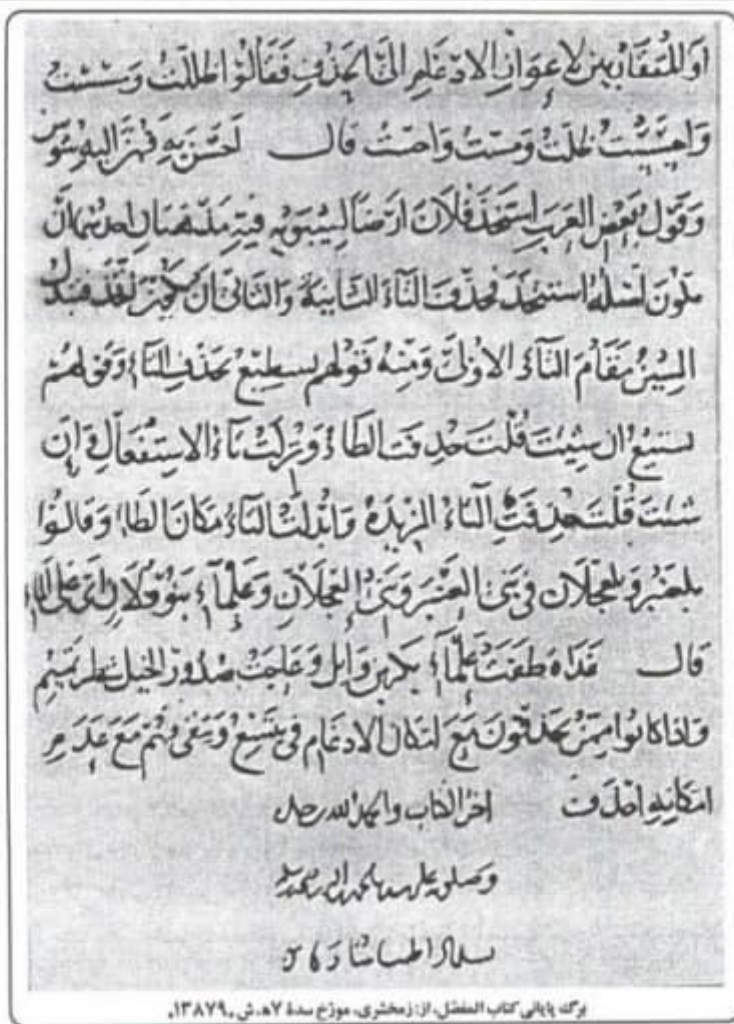 او المتقاربين لاعواز الادغام الى الحذف فقالوا ظللت ومسست
واحسست ظلت ومست واحست قال احسن به فهن اليه شوس
وقول بعض العرب استخذ فلان ارضا لسيبويه فيه مذهبان احدهما ان
يكون اصله استتخذ فحذف التاء الثانية والثانى ان يكون اتخذ فتبدل
السين مقام التاء الاولى ومنه قولهم يسطيع بحذف التاء وقولهم
يستيع ان شئت قلت حذفت الطاء وتركت تاء الاستفعال وان
شئت قلت حذفت التاء المزيدة وابدلت التاء مكان الطاء وقالوا
بلعنبر وبلعجلان فى بنى العنبر وبنى العجلان وعلماء بنو فلان اى على الماء
قال غداة طفت علماء بكر بن وايل وعاجت صدور الخيل شطر تميم
واذا كانوا ممن يحذفون مع امكان الادغام فى يتسع ويتقى فهم مع عدم
امكانه احذف اخر الكتاب والحمد لله
وصلى على سيدنا محمد
برگ پایانی کتاب المفصّل، از: زمخشری، مورّخ سدۀ ۷ ه‍.ش ۱۳۸۷۹.